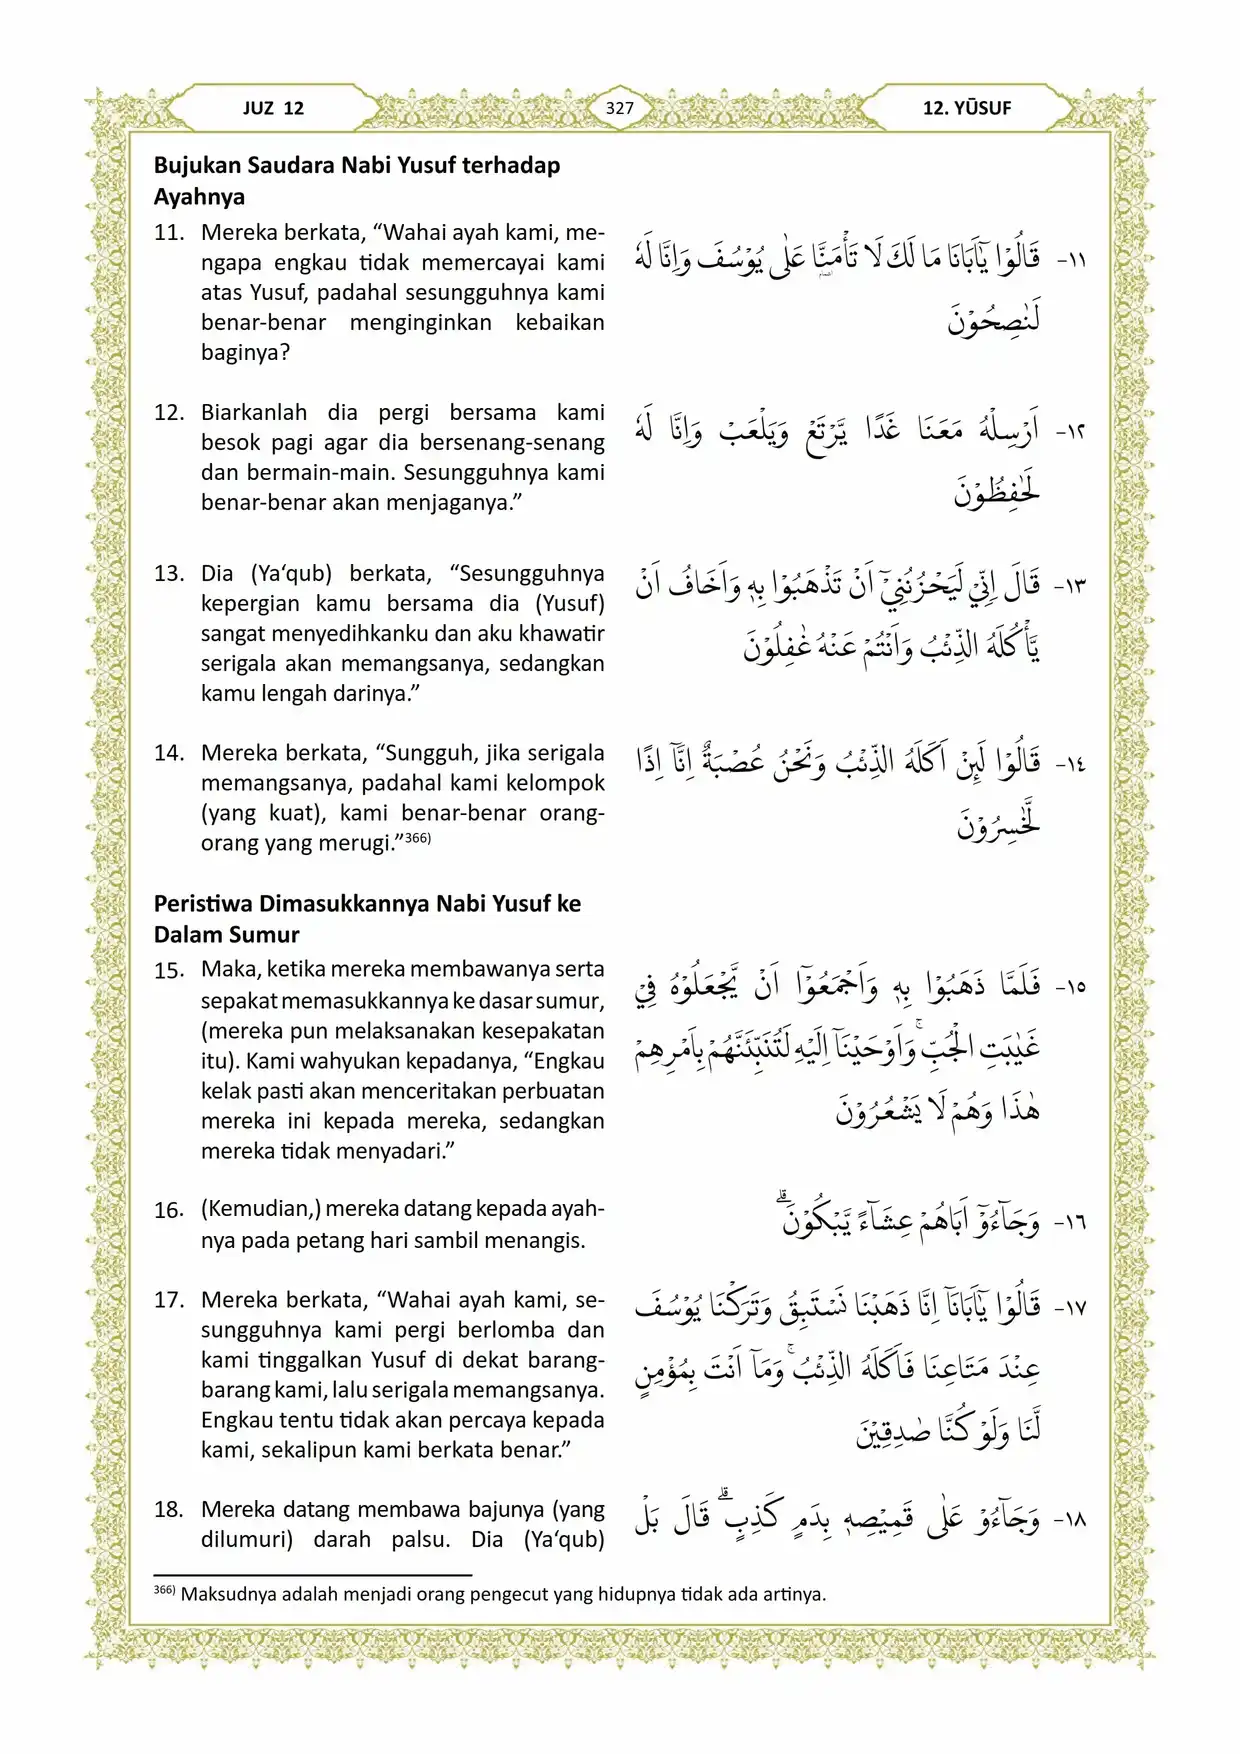 JUZ 12
327
12. YŪSUF
Bujukan Saudara Nabi Yusuf terhadap
Ayahnya
11. Mereka berkata, “Wahai ayah kami, me-
ngapa engkau tidak memercayai kami
atas Yusuf, padahal sesungguhnya kami
benar-benar menginginkan kebaikan
baginya?
١١- قَالُوْا يٰٓاَبَانَا مَا لَكَ لَا تَأْمَنَّ۫ا عَلٰى يُوْسُفَ وَاِنَّا لَهٗ
لَنٰصِحُوْنَ
12. Biarkanlah dia pergi bersama kami
besok pagi agar dia bersenang-senang
dan bermain-main. Sesungguhnya kami
benar-benar akan menjaganya.”
١٢- اَرْسِلْهُ مَعَنَا غَدًا يَّرْتَعْ وَيَلْعَبْ وَاِنَّا لَهٗ
لَحٰفِظُوْنَ
13. Dia (Ya‘qub) berkata, “Sesungguhnya
kepergian kamu bersama dia (Yusuf)
sangat menyedihkanku dan aku khawatir
serigala akan memangsanya, sedangkan
kamu lengah darinya.”
١٣- قَالَ اِنِّيْ لَيَحْزُنُنِيْٓ اَنْ تَذْهَبُوْا بِهٖ وَاَخَافُ اَنْ
يَّأْكُلَهُ الذِّئْبُ وَاَنْتُمْ عَنْهُ غٰفِلُوْنَ
14. Mereka berkata, “Sungguh, jika serigala
memangsanya, padahal kami kelompok
(yang kuat), kami benar-benar orang-
orang yang merugi.”366)
١٤- قَالُوْا لَىِٕنْ اَكَلَهُ الذِّئْبُ وَنَحْنُ عُصْبَةٌ اِنَّآ اِذًا
لَّخٰسِرُوْنَ
Peristiwa Dimasukkannya Nabi Yusuf ke
Dalam Sumur
15. Maka, ketika mereka membawanya serta
sepakat memasukkannya ke dasar sumur,
(mereka pun melaksanakan kesepakatan
itu). Kami wahyukan kepadanya, “Engkau
kelak pasti akan menceritakan perbuatan
mereka ini kepada mereka, sedangkan
mereka tidak menyadari.”
١٥- فَلَمَّا ذَهَبُوْا بِهٖ وَاَجْمَعُوْٓا اَنْ يَّجْعَلُوْهُ فِيْ
غَيٰبَتِ الْجُبِّۚ وَاَوْحَيْنَآ اِلَيْهِ لَتُنَبِّئَنَّهُمْ بِاَمْرِهِمْ
هٰذَا وَهُمْ لَا يَشْعُرُوْنَ
16. (Kemudian,) mereka datang kepada ayah-
nya pada petang hari sambil menangis.
١٦- وَجَاۤءُوْٓ اَبَاهُمْ عِشَاۤءً يَّبْكُوْنَۗ
17. Mereka berkata, “Wahai ayah kami, se-
sungguhnya kami pergi berlomba dan
kami tinggalkan Yusuf di dekat barang-
barang kami, lalu serigala memangsanya.
Engkau tentu tidak akan percaya kepada
kami, sekalipun kami berkata benar.”
١٧- قَالُوْا يٰٓاَبَانَآ اِنَّا ذَهَبْنَا نَسْتَبِقُ وَتَرَكْنَا يُوْسُفَ
عِنْدَ مَتَاعِنَا فَاَكَلَهُ الذِّئْبُۚ وَمَآ اَنْتَ بِمُؤْمِنٍ
لَّنَا وَلَوْ كُنَّا صٰدِقِيْنَ
18. Mereka datang membawa bajunya (yang
dilumuri) darah palsu. Dia (Ya‘qub)
١٨- وَجَاۤءُوْ عَلٰى قَمِيْصِهٖ بِدَمٍ كَذِبٍۗ قَالَ بَلْ
366) Maksudnya adalah menjadi orang pengecut yang hidupnya tidak ada artinya.